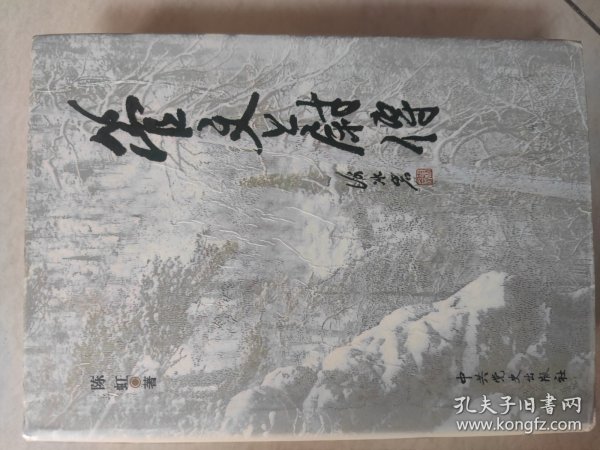 管文蔚傳
陈虹 著
中共党史出版社
孔夫子旧书网
www.kongfz.com